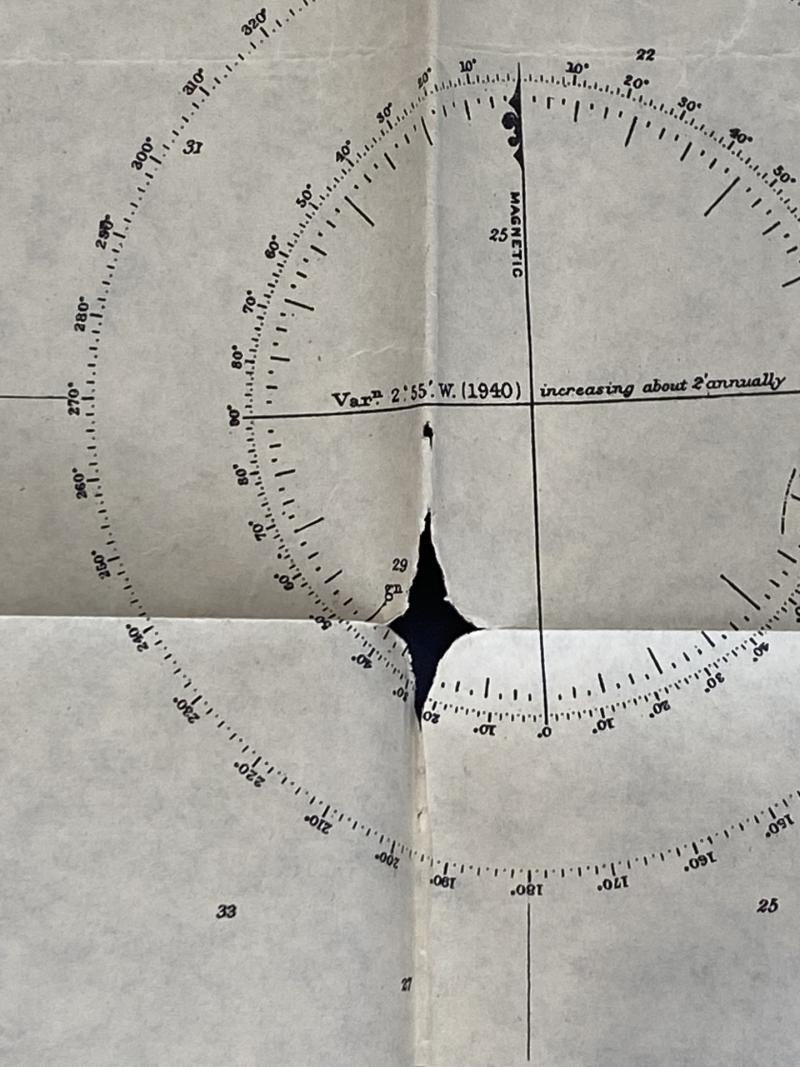 320°
22
10° 10°
20° 20°
310° 30° 30°
31 40° 40°
300° 50° 50°
MAGNETIC
25
290° 60°
280° 70°
80°
Varⁿ 2°55'W. (1940) increasing about 2' annually
270° 90°
260° 80°
70°
250° 29 60°
gn
50°
240° 40° 40°
30° 30°
230° 20° 10° 0° 10° 20°
220°
210°
200° 190° 180° 170° 160° 150°
33 25
27